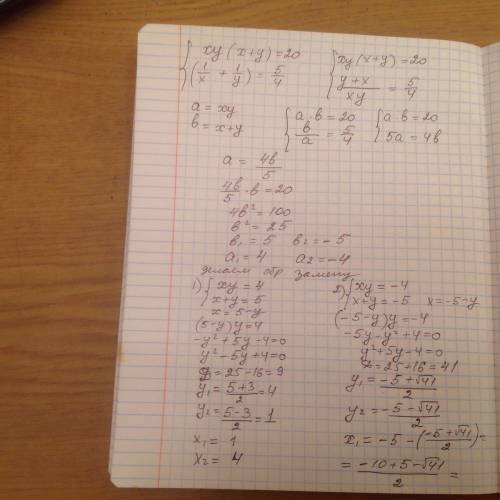 { xy (x+y) = 20
(1/x + 1/y) = 5/4
{ xy (x+y) = 20
(y+x)/xy = 5/4
a = xy
b = x+y
{ a·b = 20
b/a = 5/4
{ a·b = 20
5a = 4b
a = 4b/5
4b/5 · b = 20
4b² = 100
b² = 25
b₁ = 5 b₂ = -5
a₁ = 4 a₂ = -4
делаем обр замену
1) { xy = 4
x+y = 5
x = 5-y
(5-y)y = 4
-y²+5y-4=0
y²-5y+4=0
D = 25-16 = 9
y₁ = (5+3)/2 = 4
y₂ = (5-3)/2 = 1
x₁ = 1
x₂ = 4
2) { xy = -4
x+y = -5 x = -5-y
(-5-y)y = -4
-5y-y²+4=0
y²+5y-4=0
D = 25+16 = 41
y₁ = (-5+√41)/2
y₂ = (-5-√41)/2
x₁ = -5 - (-5+√41)/2 =
= (-10+5-√41)/2 =